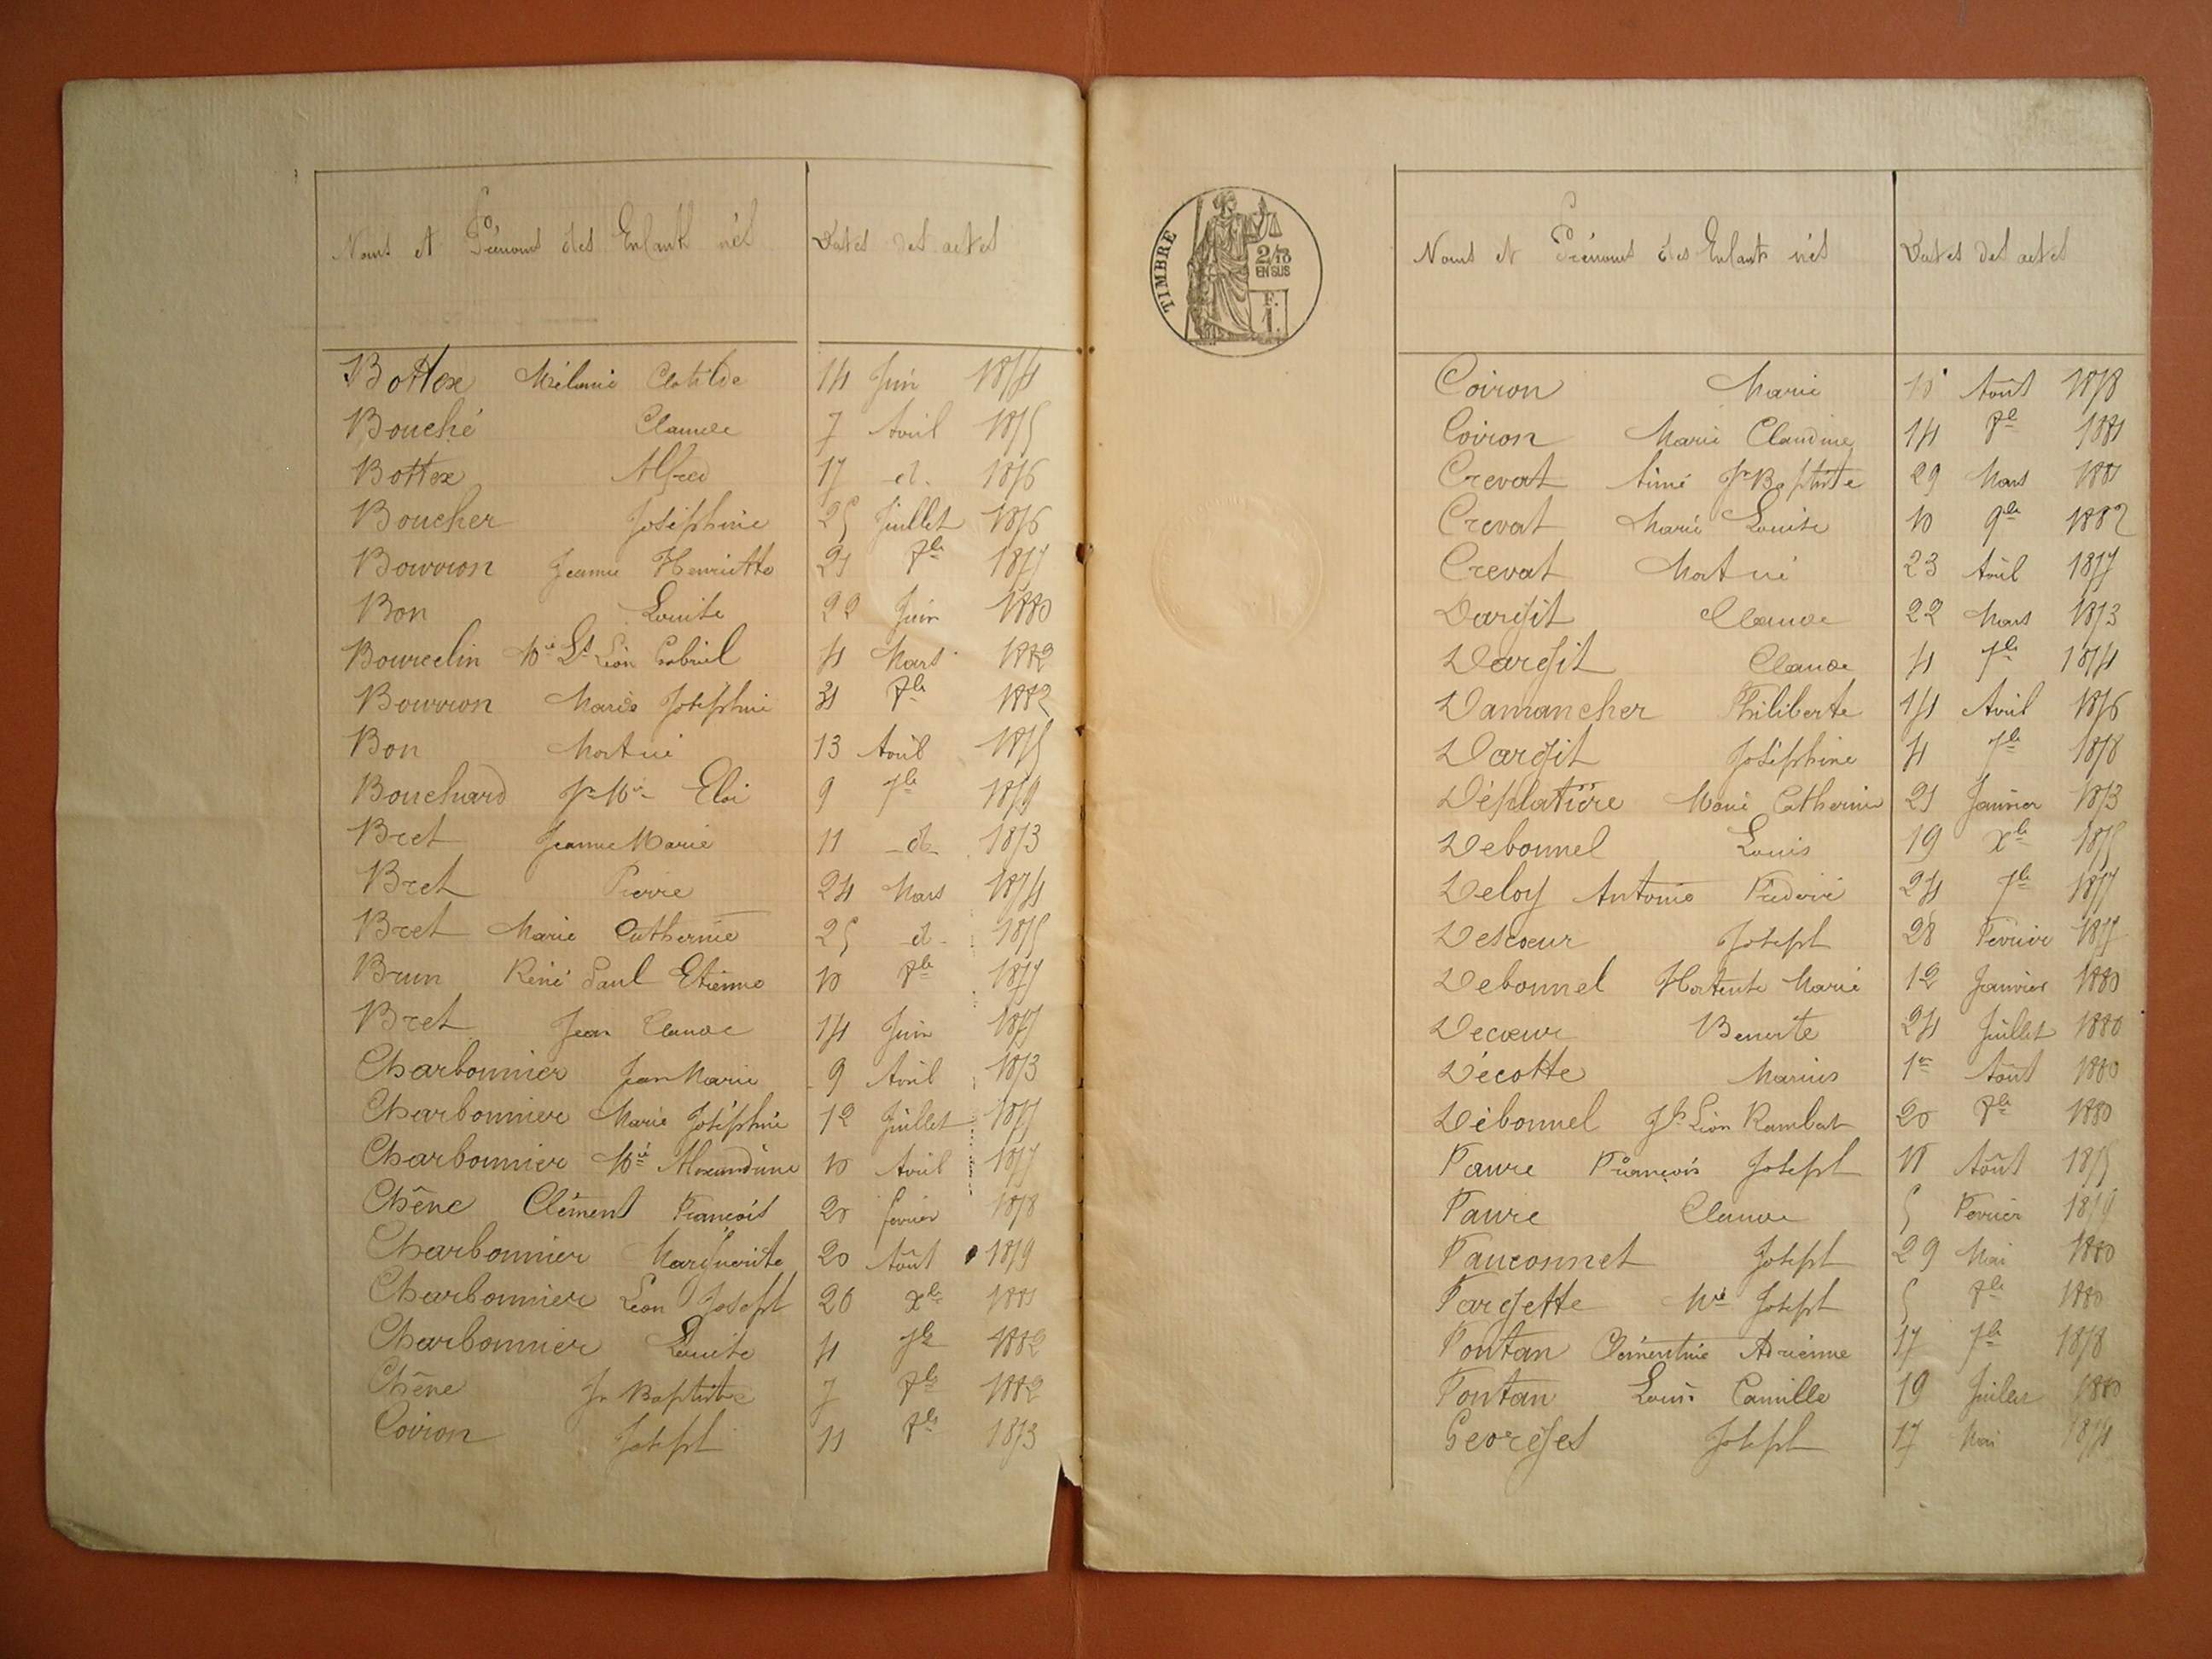 Noms et Prénoms des Enfants nés Dates des actes
Bottex Mélanie Clotilde 14 Juin 1874
Bouché Claude 7 Avril 1875
Bottex Alfred 17 d. 1876
Boucher Joséphine 25 Juillet 1876
Bourron Jeanne Henriette 21 8bre 1877
Bon Louise 22 Juin 1880
Bourcelin Mie Ls Léon Gabriel 4 Mars 1882
Bourron Marie Joséphine 31 8bre 1882
Bon Mort né 13 Avril 1875
Bouchard Jn Mie Eloi 9 7bre 1879
Bret Jeanne Marie 11 d 1873
Bret Pierre 24 Mars 1874
Bret Marie Catherine 25 d 1875
Brun Réné Paul Etienne 10 8bre 1877
Bret Jean Claude 14 Juin 1877
Charbonnier Jean Marie 9 Avril 1873
Charbonnier Marie Joséphine 12 Juillet 1877
Charbonnier Mie Alexandrine 10 Avril 1877
Chêne Clément François 20 fevrier 1878
Charbonnier Marguerite 20 Août 1879
Charbonnier Léon Joseph 20 Xbre 1881
Charbonnier Louise 4 7bre 1882
Chêne Jn Baptiste 7 8bre 1882
Coiron Joseph 11 8bre 1873
TIMBRE
2/10
EN SUS
F.
1.
Noms et Prénoms des Enfants nés Dates des actes
Coiron Marie Août 1878
Coiron Marie Claudine 14 8bre 1881
Crevat Aimé Jn Baptiste 29 Mars 1881
Crevat Marie Louise 10 9bre 1882
Crevat Mort né 23 Avril 1877
Dargit Claude 22 Mars 1873
Dargit Claude 4 7bre 1874
Damancher Philiberte 14 Avril 1876
Dargit Joséphine 4 7bre 1878
Déplatière Marie Catherine 21 Janvier 1873
Debonnel Louis 19 Xbre 1875
Deloy Antoine Fréderic 24 7bre 1877
Descœur Joseph 28 Fevrier 1877
Debonnel Hortense Marie 12 Janvier 1880
Decœur Benoite 24 Juillet 1880
Décotte Marius 1er Août 1880
Débonnel Jh Léon Rambat 20 8bre 1880
Faure François Joseph Août 1875
Faure Claude 5 Fevrier 1879
Fauconnet Joseph 29 Mai 1880
Fargette Mie Joseph 5 8bre 1880
Fontan Clémentine Adrienne 17 7bre 1878
Fontan Louis Camille 19 Juillet 1880
Georges Joseph 17 Mai 1874